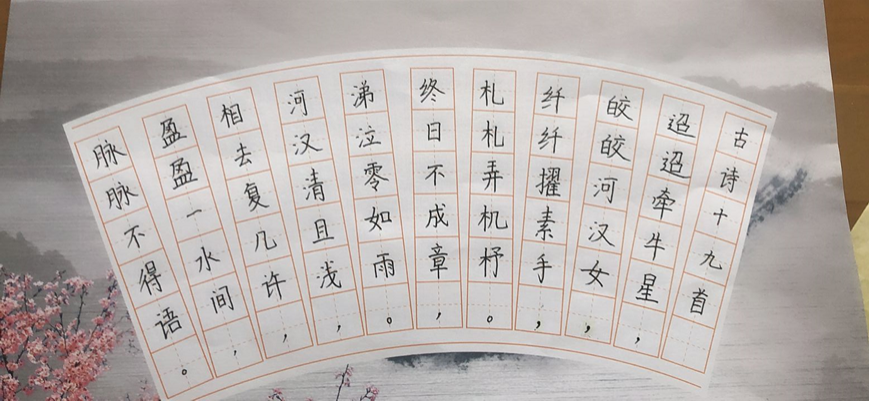 古诗十九首
迢迢牵牛星，
皎皎河汉女，
纤纤擢素手，
札札弄机杼。
终日不成章，
涕泣零如雨。
河汉清且浅，
相去复几许，
盈盈一水间，
脉脉不得语。